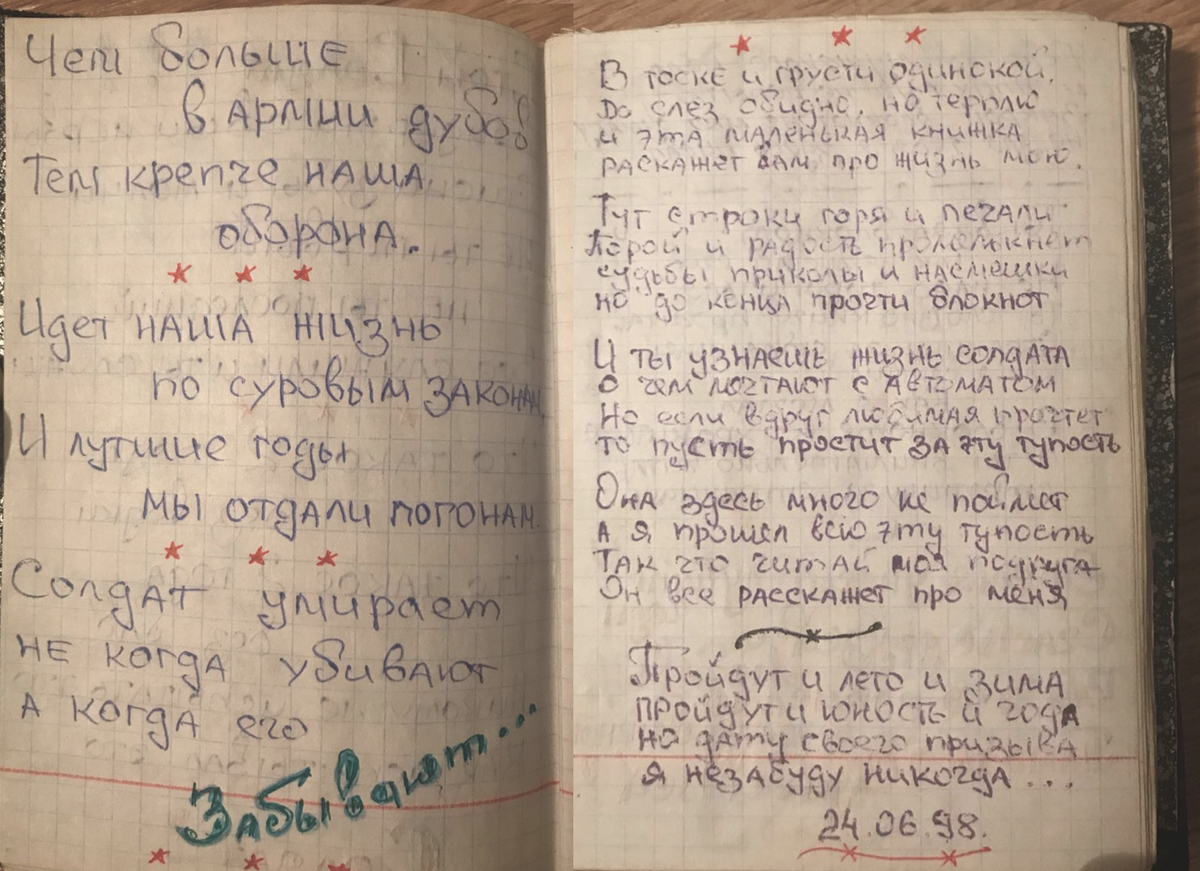 Чем больше
в армии дубов
Тем крепче наша
оборона.
Идет наша жизнь
по суровым законам
И лутшие годы
мы отдали погонам.
Солдат умирает
не когда убивают
а когда его
Забывают...
В тоске и грусти одинокой.
До слез обидно, но терплю
и эта маленькая книжка
раскажет вам про жизнь мою.
Тут строки горя и печали
Порой и радость промелькнет
судьбы приколы и насмешки
но до конца прочти блокнот
И ты узнаешь жизнь солдата
О чем мечтают с автоматом
Но если вдруг любимая прочтет
то пусть простит за эту тупость
Она здесь много не поймет
а я прошел всю эту тупость
Так что читай моя подруга
Он все расскажет про меня
Пройдут и лето и зима
пройдут и юность и года
но дату своего призыва
я незабуду никогда...
24.06.98.